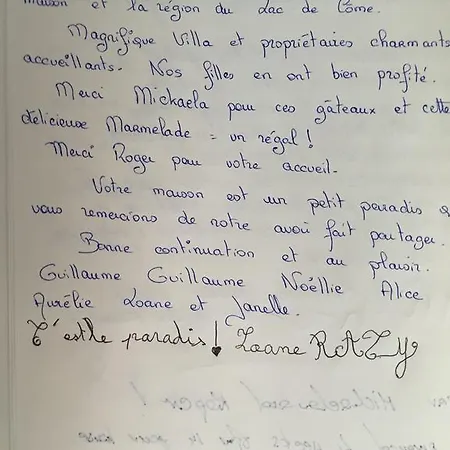 maison et la région du Lac de Côme.
Magnifique Villa et propriétaires charmants
accueillants. Nos filles en ont bien profité.
Merci Mickaela pour ces gâteaux et cette
délicieuse Marmelade = un régal !
Merci Roger pour votre accueil.
Votre maison est un petit paradis &
vous remercions de notre avoir fait partager.
Bonne continuation et au plaisir.
Guillaume Guillaume Noéllie Alice
Aurélie Loane et Janelle.
C'est le paradis ! Loane RATY